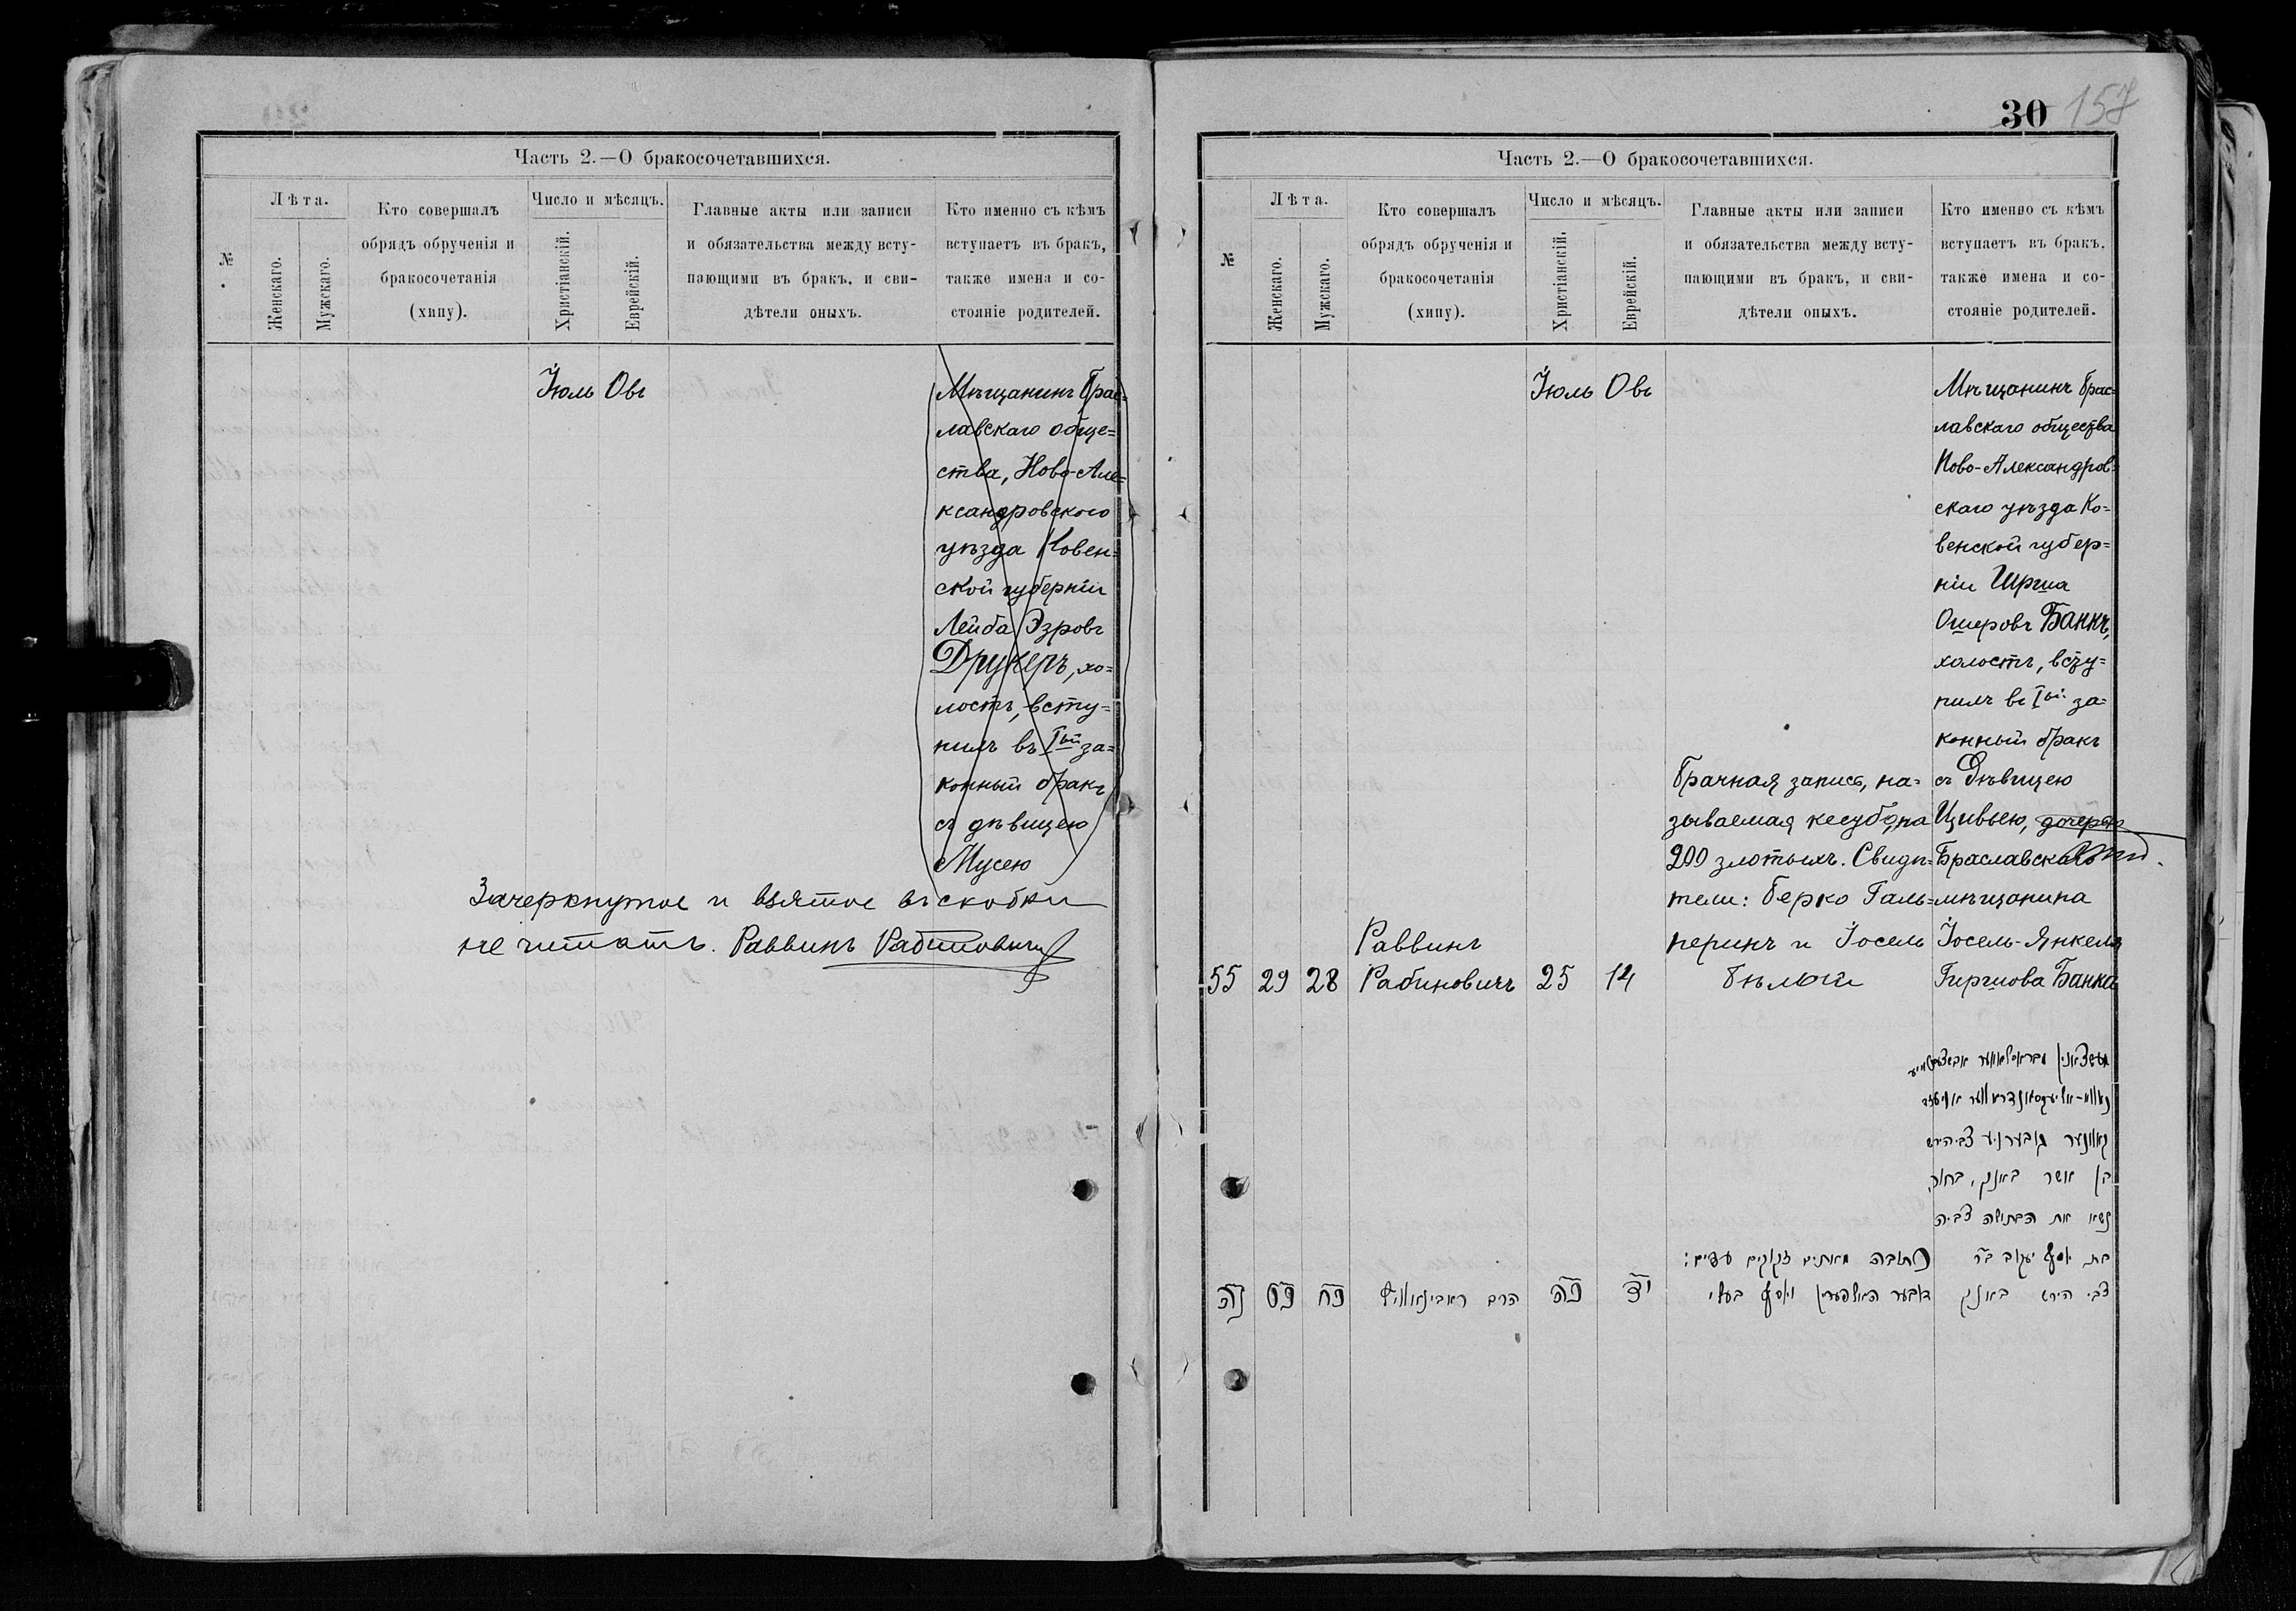 Часть 2.—О бракосочетавшихся.
№
Лѣта.
Женскаго.
Мужскаго.
Кто совершалъ
обрядъ обрученія и
бракосочетанія
(хипу).
Число и мѣсяцъ.
Христіанскій.
Еврейскій.
Главные акты или записи
и обязательства между всту-
пающими въ бракъ, и сви-
дѣтели оныхъ.
Кто именно съ кѣмъ
вступаетъ въ бракъ,
также имена и со-
стояніе родителей.
Іюль Овъ
Мѣщанинъ Брас-
лавскаго обще=
ства, Ново-Але=
ксандровскаго
уѣзда Ковен=
ской губерніи
Лейба Эзровъ
Друкеръ, хо=
лостъ, всту=
пилъ въ Iый за=
конный бракъ
съ дѣвицею
Мусею
Зачеркнутое и взятое въ скобки
не читать. Раввинъ Рабиновичъ
30 157
Часть 2.—О бракосочетавшихся.
№
Лѣта.
Женскаго.
Мужскаго.
Кто совершалъ
обрядъ обрученія и
бракосочетанія
(хипу).
Число и мѣсяцъ.
Христіанскій.
Еврейскій.
Главные акты или записи
и обязательства между всту-
пающими въ бракъ, и сви-
дѣтели оныхъ.
Кто именно съ кѣмъ
вступаетъ въ бракъ,
также имена и со-
стояніе родителей.
Іюль Овъ
Мѣщанинъ Брас=
лавскаго общества
Ново-Александров=
скаго уѣзда Ко=
венской губер=
ніи Гирша
Ошеровъ Банкъ,
холостъ, всту=
пилъ въ Iый за=
конный бракъ
съ Дѣвицею
Цивьею, дочерью
Браславскаго
мѣщанина
Іосель-Янкеля
Гиршова Банка
Брачная запись, на=
зываемая кесубо, на
200 злотыхъ. Свидѣ=
тели: Берко Галь=
перинъ и Іосель
Бѣлый
Раввинъ
55 29 28 Рабиновичъ 25 14
גובערניע צבי הירש
בן אשר באנק, בחור,
נשא את הבתולה צביה
בת יוסף יעקב בר
צבי הירש באנק
כתובה מאתים זקוקים עדים:
דובער האלפערין ויוסף
נה כט כח הרב ראבינאוויץ כה יד